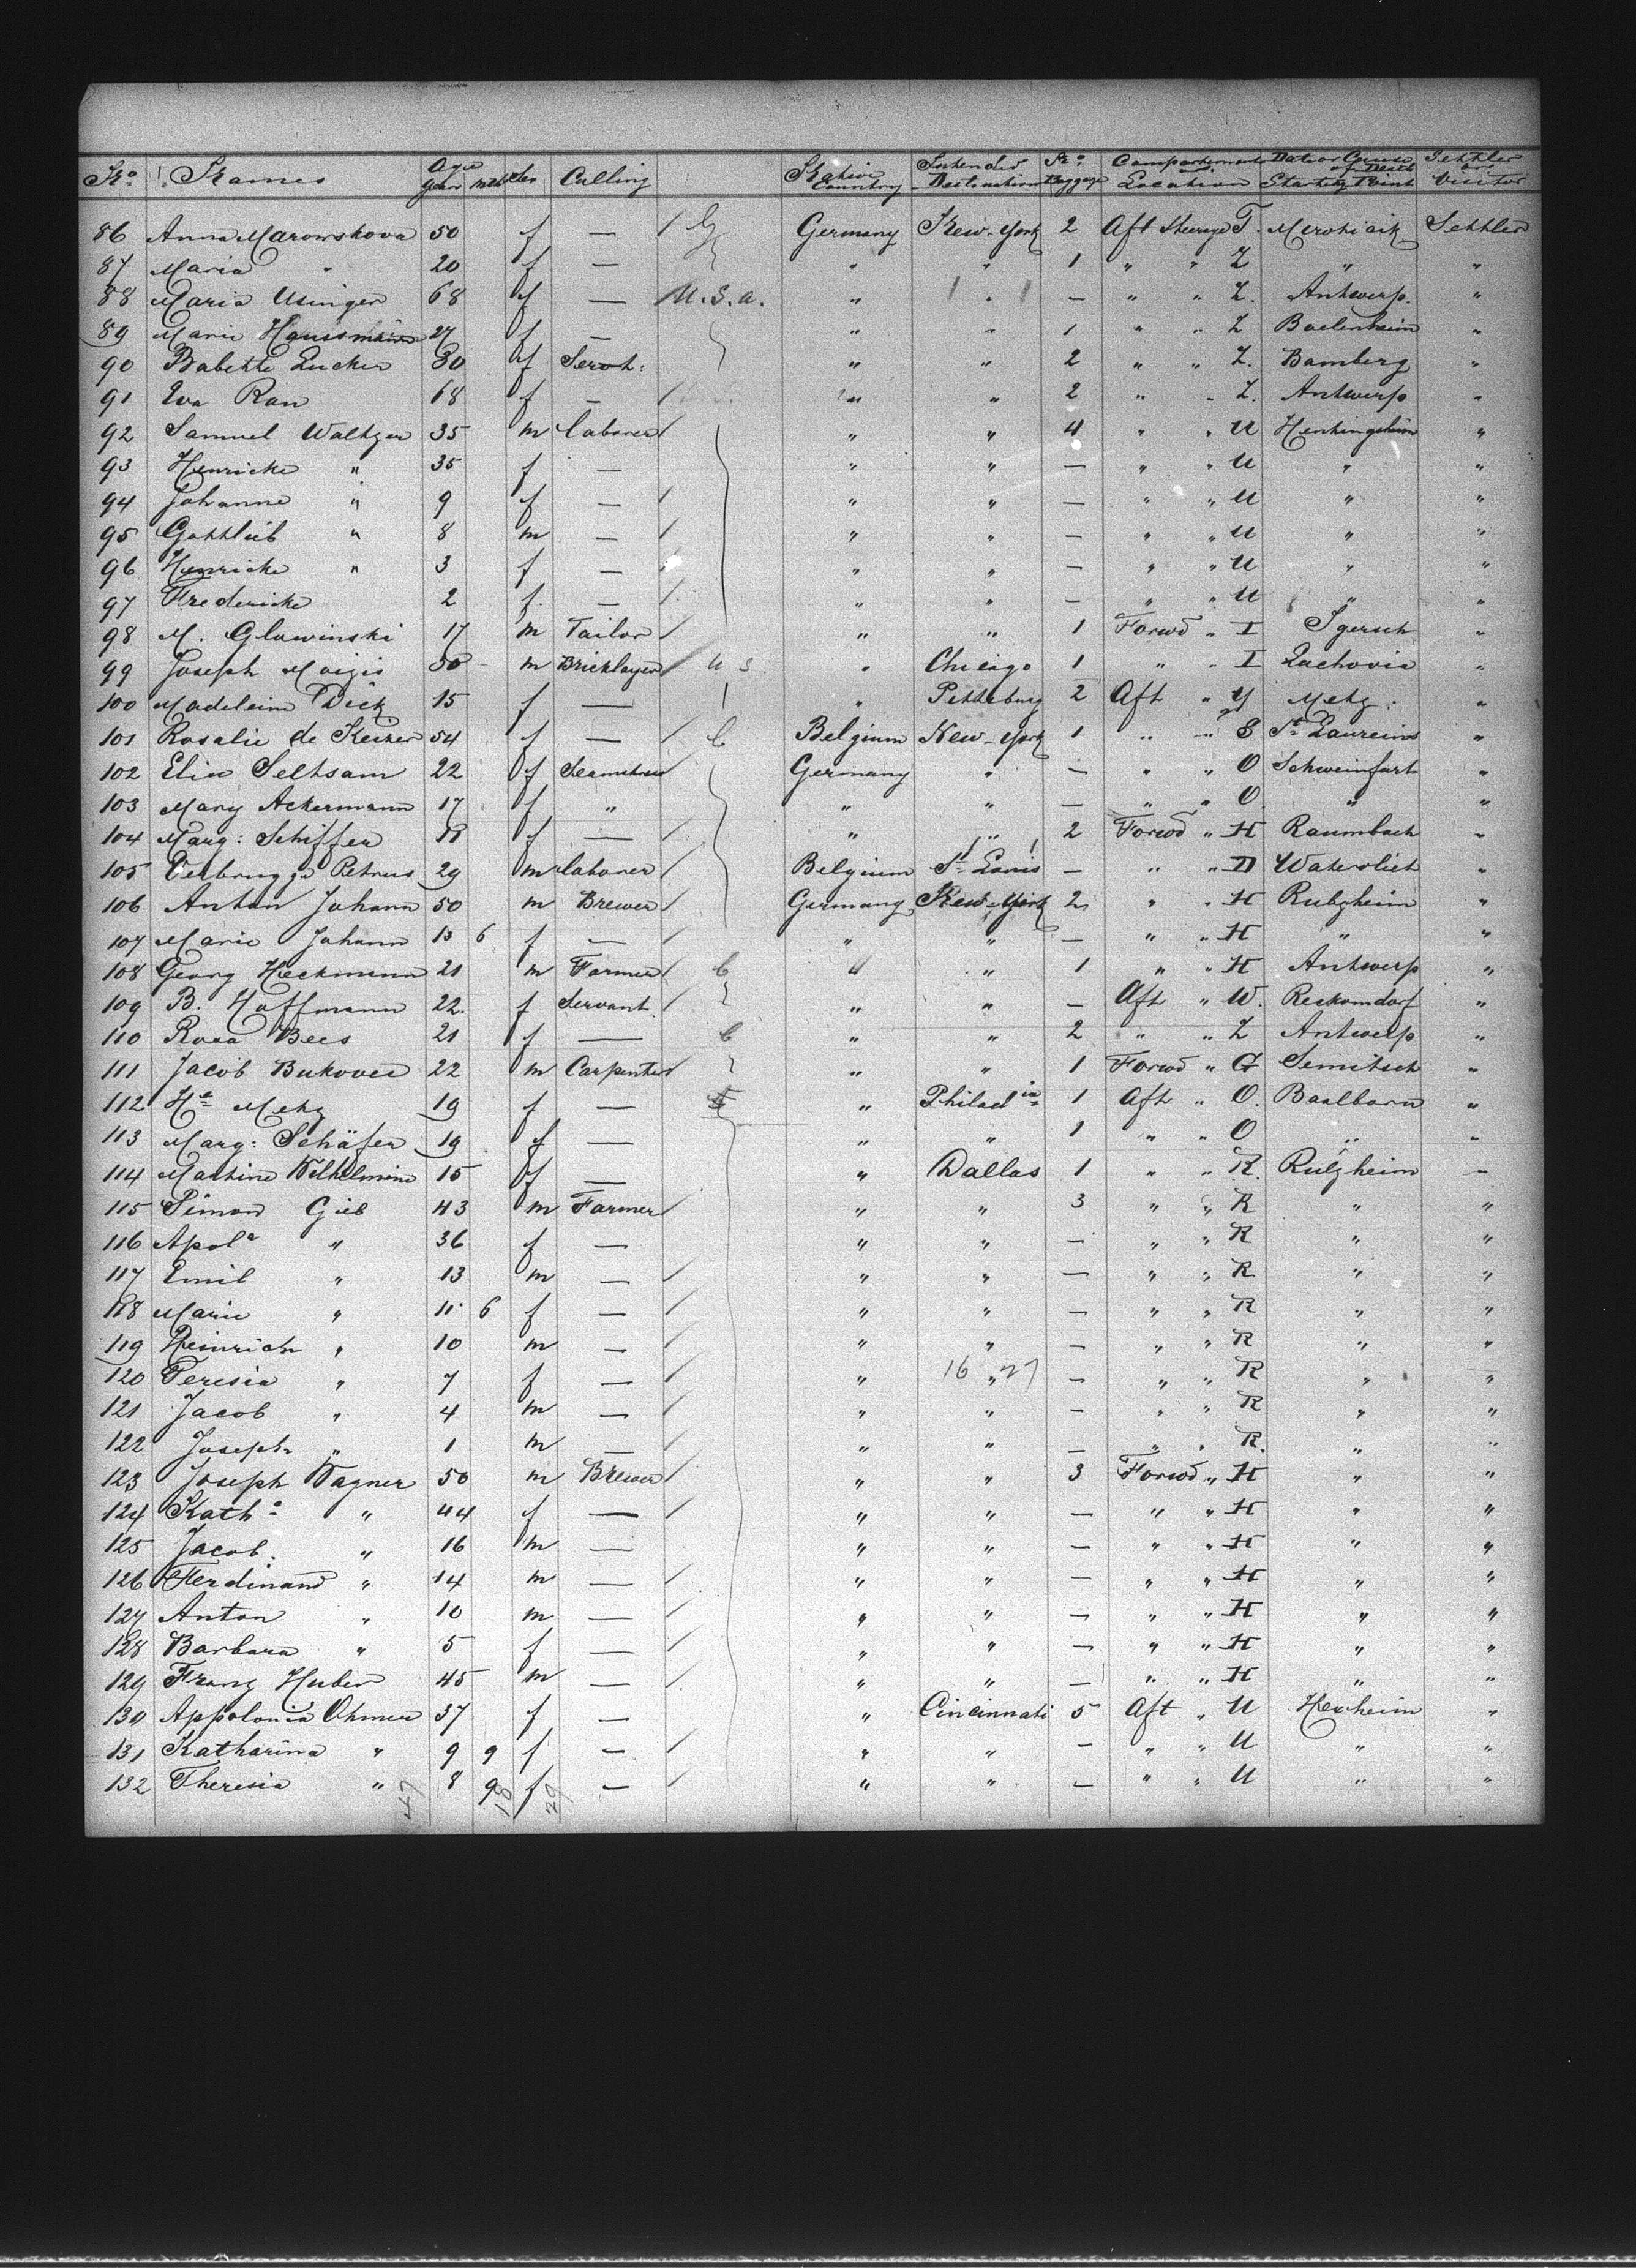 No. Names Age Years Mths Sex Calling Native Country Intended Destination No. Baggage Compartement and Location Date or Cause of Death Starting Point Settler or Visitor
86 Anna Marowskova 50 f — / G Germany New-York 2 Aft Steerage T. Settler
87 Maria " 20 f — " " 1 " " Z " "
88 Maria Usinger 68 f — / U.S.a. " " — " " Z. Antwerp. "
89 Marie Haussmann 27 f — " " 1 " " Z "
90 Babette Zucker 30 f Servt: " " 2 " " Z. Bamberg "
91 Eva Rau 68 f — / " " 2 " " Z. Antwerp "
92 Samuel Waltger 35 m laborer / " " 4 " " U "
93 Henricke " 35 f — " " — " " U " "
94 Johanne " 9 f — / " " — " " U " "
95 Gottlieb " 8 m — / " " — " " U " "
96 Henricke " 3 f — " " — " " U " "
97 Fredericke 2 f. — / " " — " " U " "
98 M. Glowinski 17 m Tailor / " " 1 Forwd " I Sgersch "
99 Joseph Maigis 50 m Bricklayer / U S " Chicago 1 " " I Zachovia "
100 Madeleine Dick 15 f — / " Pittsburg 2 Aft " Y Metz. "
101 Rosalie de Keizer 54 f — / C Belgium New-York 1 " " S St Laureins "
102 Elise Seltsam 22 f Seamstress Germany " — " " O Schweinfurt "
103 Mary Ackermann 17 f " " " — " " O. " "
104 Marg: Schiffer 18 f — / " " 2 Forwd " H Raumbach "
105 Verbrugge Petrus 29 m laborer / Belgium St Louis — " " D Watervliet "
106 Anton Johann 50 m Brewer / Germany New-York 2 " " H Rulzheim "
107 Marie Johann 13 6 f — / " " — " " H " "
108 Georg Heckmann 21 m Farmer / C " " 1 " " H Antwerp "
109 B. Hoffmann 22. f Servant. / " " — Aft " W. Reckomdorf "
110 Rosa Bees 21 f — C " " 2 " " Z Antwerp "
111 Jacob Bukovec 22 m Carpenter / " " 1 Forwd " G Semitsch "
112 He Metz 19 f — " Philad ia 1 Aft " O. Baalborn "
113 Marg: Schäfer 19 f — " " 1 " " O " "
114 Martine Wilhelmine 15 f — " Dallas 1 " " R. Rülzheim "
115 Simon Gieb 43 m Farmer / " " 3 " " R " "
116 Apola " 36 f — " " — " " R " "
117 Emil " 13 m — / " " — " " R " "
118 Marie " 11 6 f — / " " — " " R " "
119 Heinrich " 10 m — / " " — " " R " "
120 Teresia " 7 f — / " 16 " 27 — " " R " "
121 Jacob " 4 m — / " " — " " R " "
122 Joseph " 1 m — / " " — " " R. " "
123 Joseph Wagner 50 m Brewer / " " 3 Forwd " H " "
124 Katha " 44 f — / " " — " " H " "
125 Jacob. " 16 m — " " — " " H " "
126 Ferdinand " 14 m — / " " — " " H " "
127 Anton " 10 m — / " " — " " H " "
128 Barbara " 5 f — / " " — " " H " "
129 Franz Huber 45 m — / " " — " " H " "
130 Appolonia Ohmer 37 f — " Cincinnati 5 Aft " U Herxheim "
131 Katharina " 9 9 f — / " " — " " U " "
132 Theresia " 8 9 f — / " " — " " U " "
47 18 29